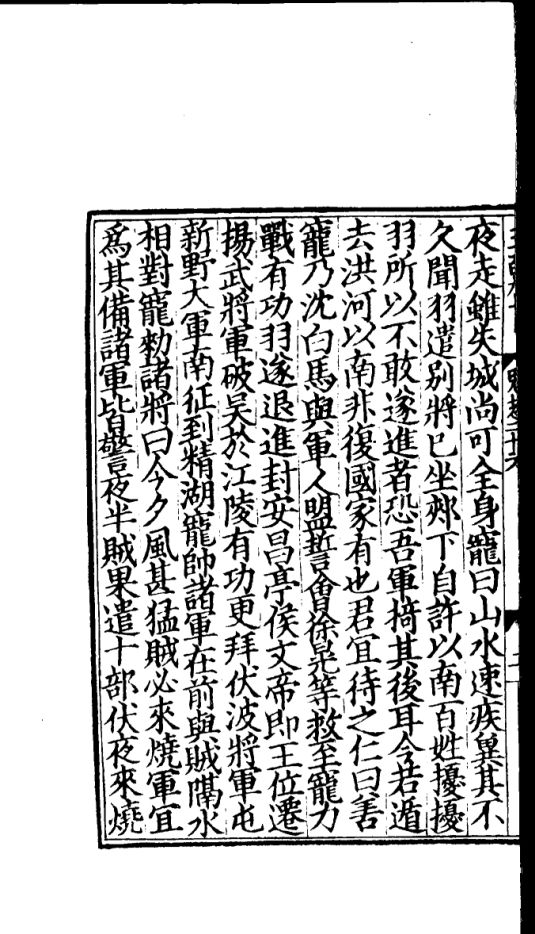 夜走雖失城尚可全身寵曰山水速疾冀其不
久聞羽遣別將已坐郟下自許以南百姓擾擾
羽所以不敢遂進者恐吾軍掎其後耳今若遁
去洪河以南非復國家有也君宜待之仁曰善
寵乃沈白馬與軍人盟誓會徐晃等救至寵力
戰有功羽遂退進封安昌亭侯文帝即王位遷
揚武將軍破吳於江陵有功更拜伏波將軍屯
新野大軍南征到精湖寵帥諸軍在前與賊隔水
相對寵勑諸將曰今夕風甚猛賊必來燒軍宜
爲其備諸軍皆警夜半賊果遣十部伏夜來燒